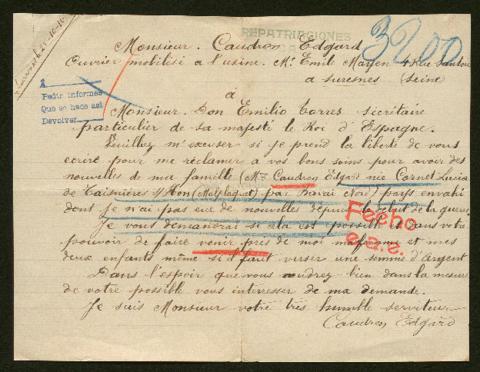 REPATRIACIONES
3200
Monsieur. Caudron Edgard
Ouvrier mobilisé a l'usine. Mr Emil 4 Rue
a suresnes (Seine)
Pedir informes
Que se hace así
Devolver
à
Monsieur. Don Emilio Torres sécrétaire
particulier de sa majesté le Roi d'Espagne.
Veuillez m'excuser si je prend la liberté de vous
écrire pour me réclamer a vos bons soins pour avoir des
nouvelles de ma famille (Mme Caudron Edgard née Cornet Lucia
de Taisnières s/ Hon (Malplaquet) par Bavai) pays envahi
dont je n'ai pas eut de nouvelles depuis le début de la guerre
Je vous demanderai si cela est possible dans votre
pouvoir de faire venir près de moi ma femme et mes
deux enfants même si il faut verser une somme d'argent
Dans l'espoir que vous voudrez bien dans la mesure
de votre possible vous intéresser de ma demande.
Je suis Monsieur votre très humble serviteur
Caudron Edgard
Fecho